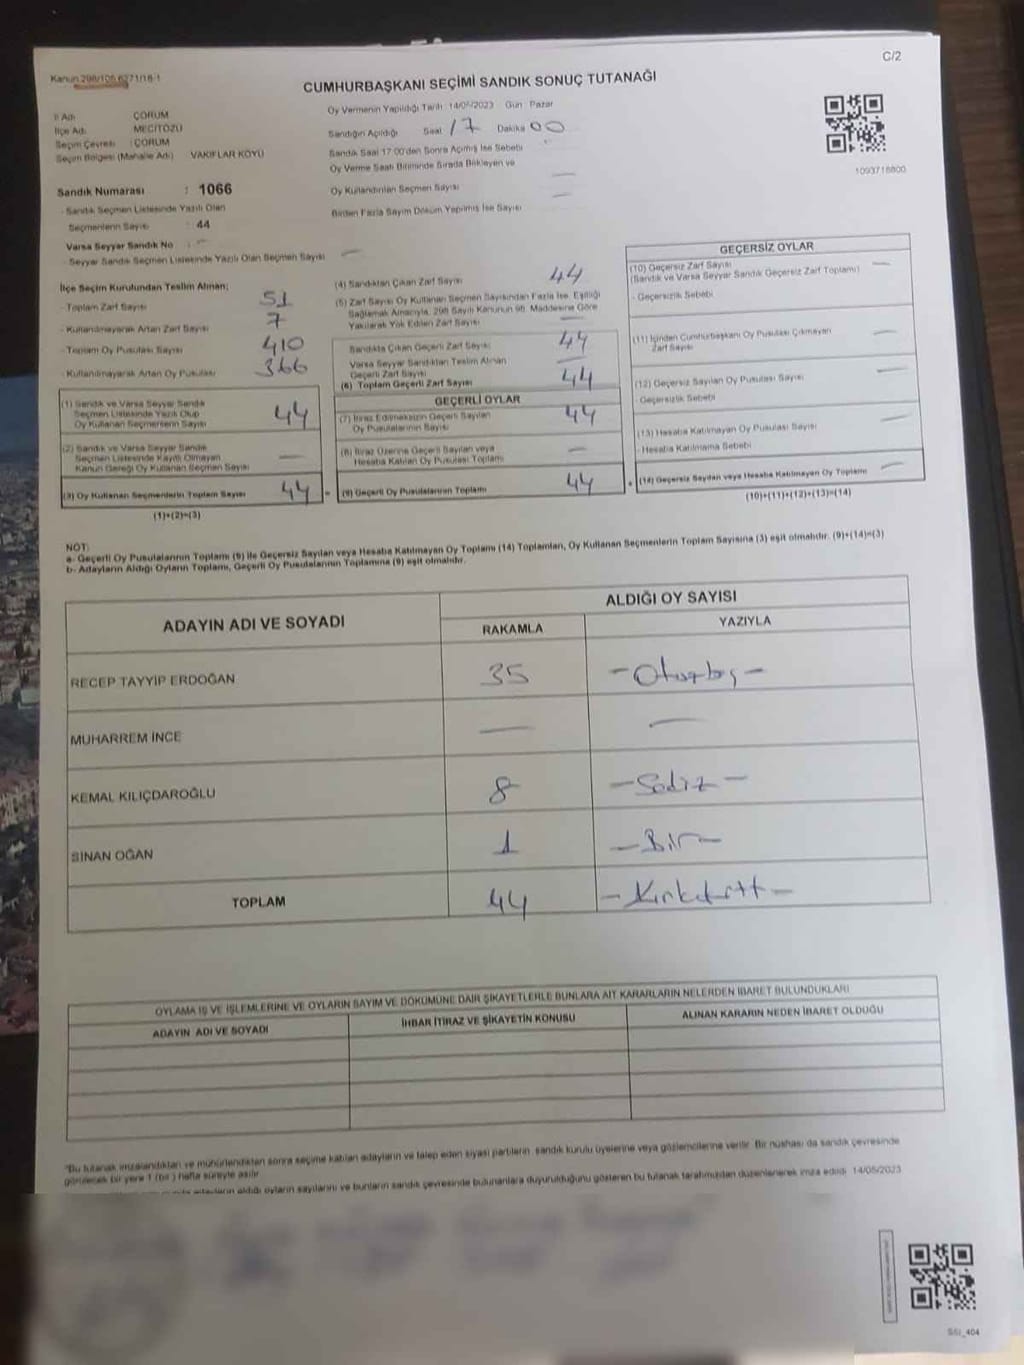 C/2
Kanun 298/105,6271/18-1
CUMHURBAŞKANI SEÇİMİ SANDIK SONUÇ TUTANAĞI
İl Adı ÇORUM
İlçe Adı MECİTÖZÜ
Seçim Çevresi : ÇORUM
Seçim Bölgesi (Mahalle Adı) VAKIFLAR KÖYÜ
Oy Vermenin Yapıldığı Tarih : 14/05/2023 Gün : Pazar
Sandığın Açıldığı Saat 17 Dakika 00
Sandık Saat 17:00'den Sonra Açılmış İse Sebebi
Oy Verme Saati Bitiminde Sırada Bekleyen ve
Oy Kullandırılan Seçmen Sayısı —
Birden Fazla Sayım Döküm Yapılmış İse Sayısı —
1093718800
Sandık Numarası : 1066
- Sandık Seçmen Listesinde Yazılı Olan
Seçmenlerin Sayısı : 44
Varsa Seyyar Sandık No : —
- Seyyar Sandık Seçmen Listesinde Yazılı Olan Seçmen Sayısı —
İlçe Seçim Kurulundan Teslim Alınan;
- Toplam Zarf Sayısı 51
- Kullanılmayarak Artan Zarf Sayısı 7
- Toplam Oy Pusulası Sayısı 410
- Kullanılmayarak Artan Oy Pusulası 366
(1) Sandık ve Varsa Seyyar Sandık
Seçmen Listesinde Yazılı Olup
Oy Kullanan Seçmenlerin Sayısı 44
(2) Sandık ve Varsa Seyyar Sandık
Seçmen Listesinde Kayıtlı Olmayan
Kanun Gereği Oy Kullanan Seçmen Sayısı —
(3) Oy Kullanan Seçmenlerin Toplam Sayısı 44 =
(1)+(2)=(3)
(4) Sandıktan Çıkan Zarf Sayısı 44
(5) Zarf Sayısı Oy Kullanan Seçmen Sayısından Fazla İse, Eşitliği
Sağlamak Amacıyla, 298 Sayılı Kanunun 98. Maddesine Göre
Yakılarak Yok Edilen Zarf Sayısı —
Sandıkta Çıkan Geçerli Zarf Sayısı 44
Varsa Seyyar Sandıktan Teslim Alınan
Geçerli Zarf Sayısı —
(6) Toplam Geçerli Zarf Sayısı 44
GEÇERLİ OYLAR
(7) İtiraz Edilmeksizin Geçerli Sayılan
Oy Pusulalarının Sayısı 44
(8) İtiraz Üzerine Geçerli Sayılan veya
Hesaba Katılan Oy Pusulası Toplamı —
(9) Geçerli Oy Pusulalarının Toplamı 44 +
GEÇERSİZ OYLAR
(10) Geçersiz Zarf Sayısı —
(Sandık ve Varsa Seyyar Sandık Geçersiz Zarf Toplamı)
- Geçersizlik Sebebi
(11) İçinden Cumhurbaşkanı Oy Pusulası Çıkmayan
Zarf Sayısı —
(12) Geçersiz Sayılan Oy Pusulası Sayısı —
- Geçersizlik Sebebi
(13) Hesaba Katılmayan Oy Pusulası Sayısı —
- Hesaba Katılmama Sebebi
(14) Geçersiz Sayılan veya Hesaba Katılmayan Oy Toplamı —
(10)+(11)+(12)+(13)=(14)
NOT:
a- Geçerli Oy Pusulalarının Toplamı (9) ile Geçersiz Sayılan veya Hesaba Katılmayan Oy Toplamı (14) Toplamları, Oy Kullanan Seçmenlerin Toplam Sayısına (3) eşit olmalıdır. (9)+(14)=(3)
b- Adayların Aldığı Oyların Toplamı, Geçerli Oy Pusulalarının Toplamına (9) eşit olmalıdır.
ADAYIN ADI VE SOYADI
ALDIĞI OY SAYISI
RAKAMLA YAZIYLA
RECEP TAYYİP ERDOĞAN 35 -Otuzbeş-
MUHARREM İNCE — —
KEMAL KILIÇDAROĞLU 8 -Sekiz-
SİNAN OĞAN 1 -Bir-
TOPLAM 44 -Kırkdört-
OYLAMA İŞ VE İŞLEMLERİNE VE OYLARIN SAYIM VE DÖKÜMÜNE DAİR ŞİKAYETLERLE BUNLARA AİT KARARLARIN NELERDEN İBARET BULUNDUKLARI
ADAYIN ADI VE SOYADI İHBAR İTİRAZ VE ŞİKAYETİN KONUSU ALINAN KARARIN NEDEN İBARET OLDUĞU
"Bu tutanak imzalandıktan ve mühürlendikten sonra seçime katılan adayların ve talep eden siyasi partilerin, sandık kurulu üyelerine veya gözlemcilerine verilir. Bir nüshası da sandık çevresinde
görülecek bir yere 1 (bir) hafta süreyle asılır.
adayların aldığı oyların sayılarını ve bunların sandık çevresinde bulunanlara duyurulduğunu gösteren bu tutanak tarafımızdan düzenlenerek imza edildi. 14/05/2023
SSI_404